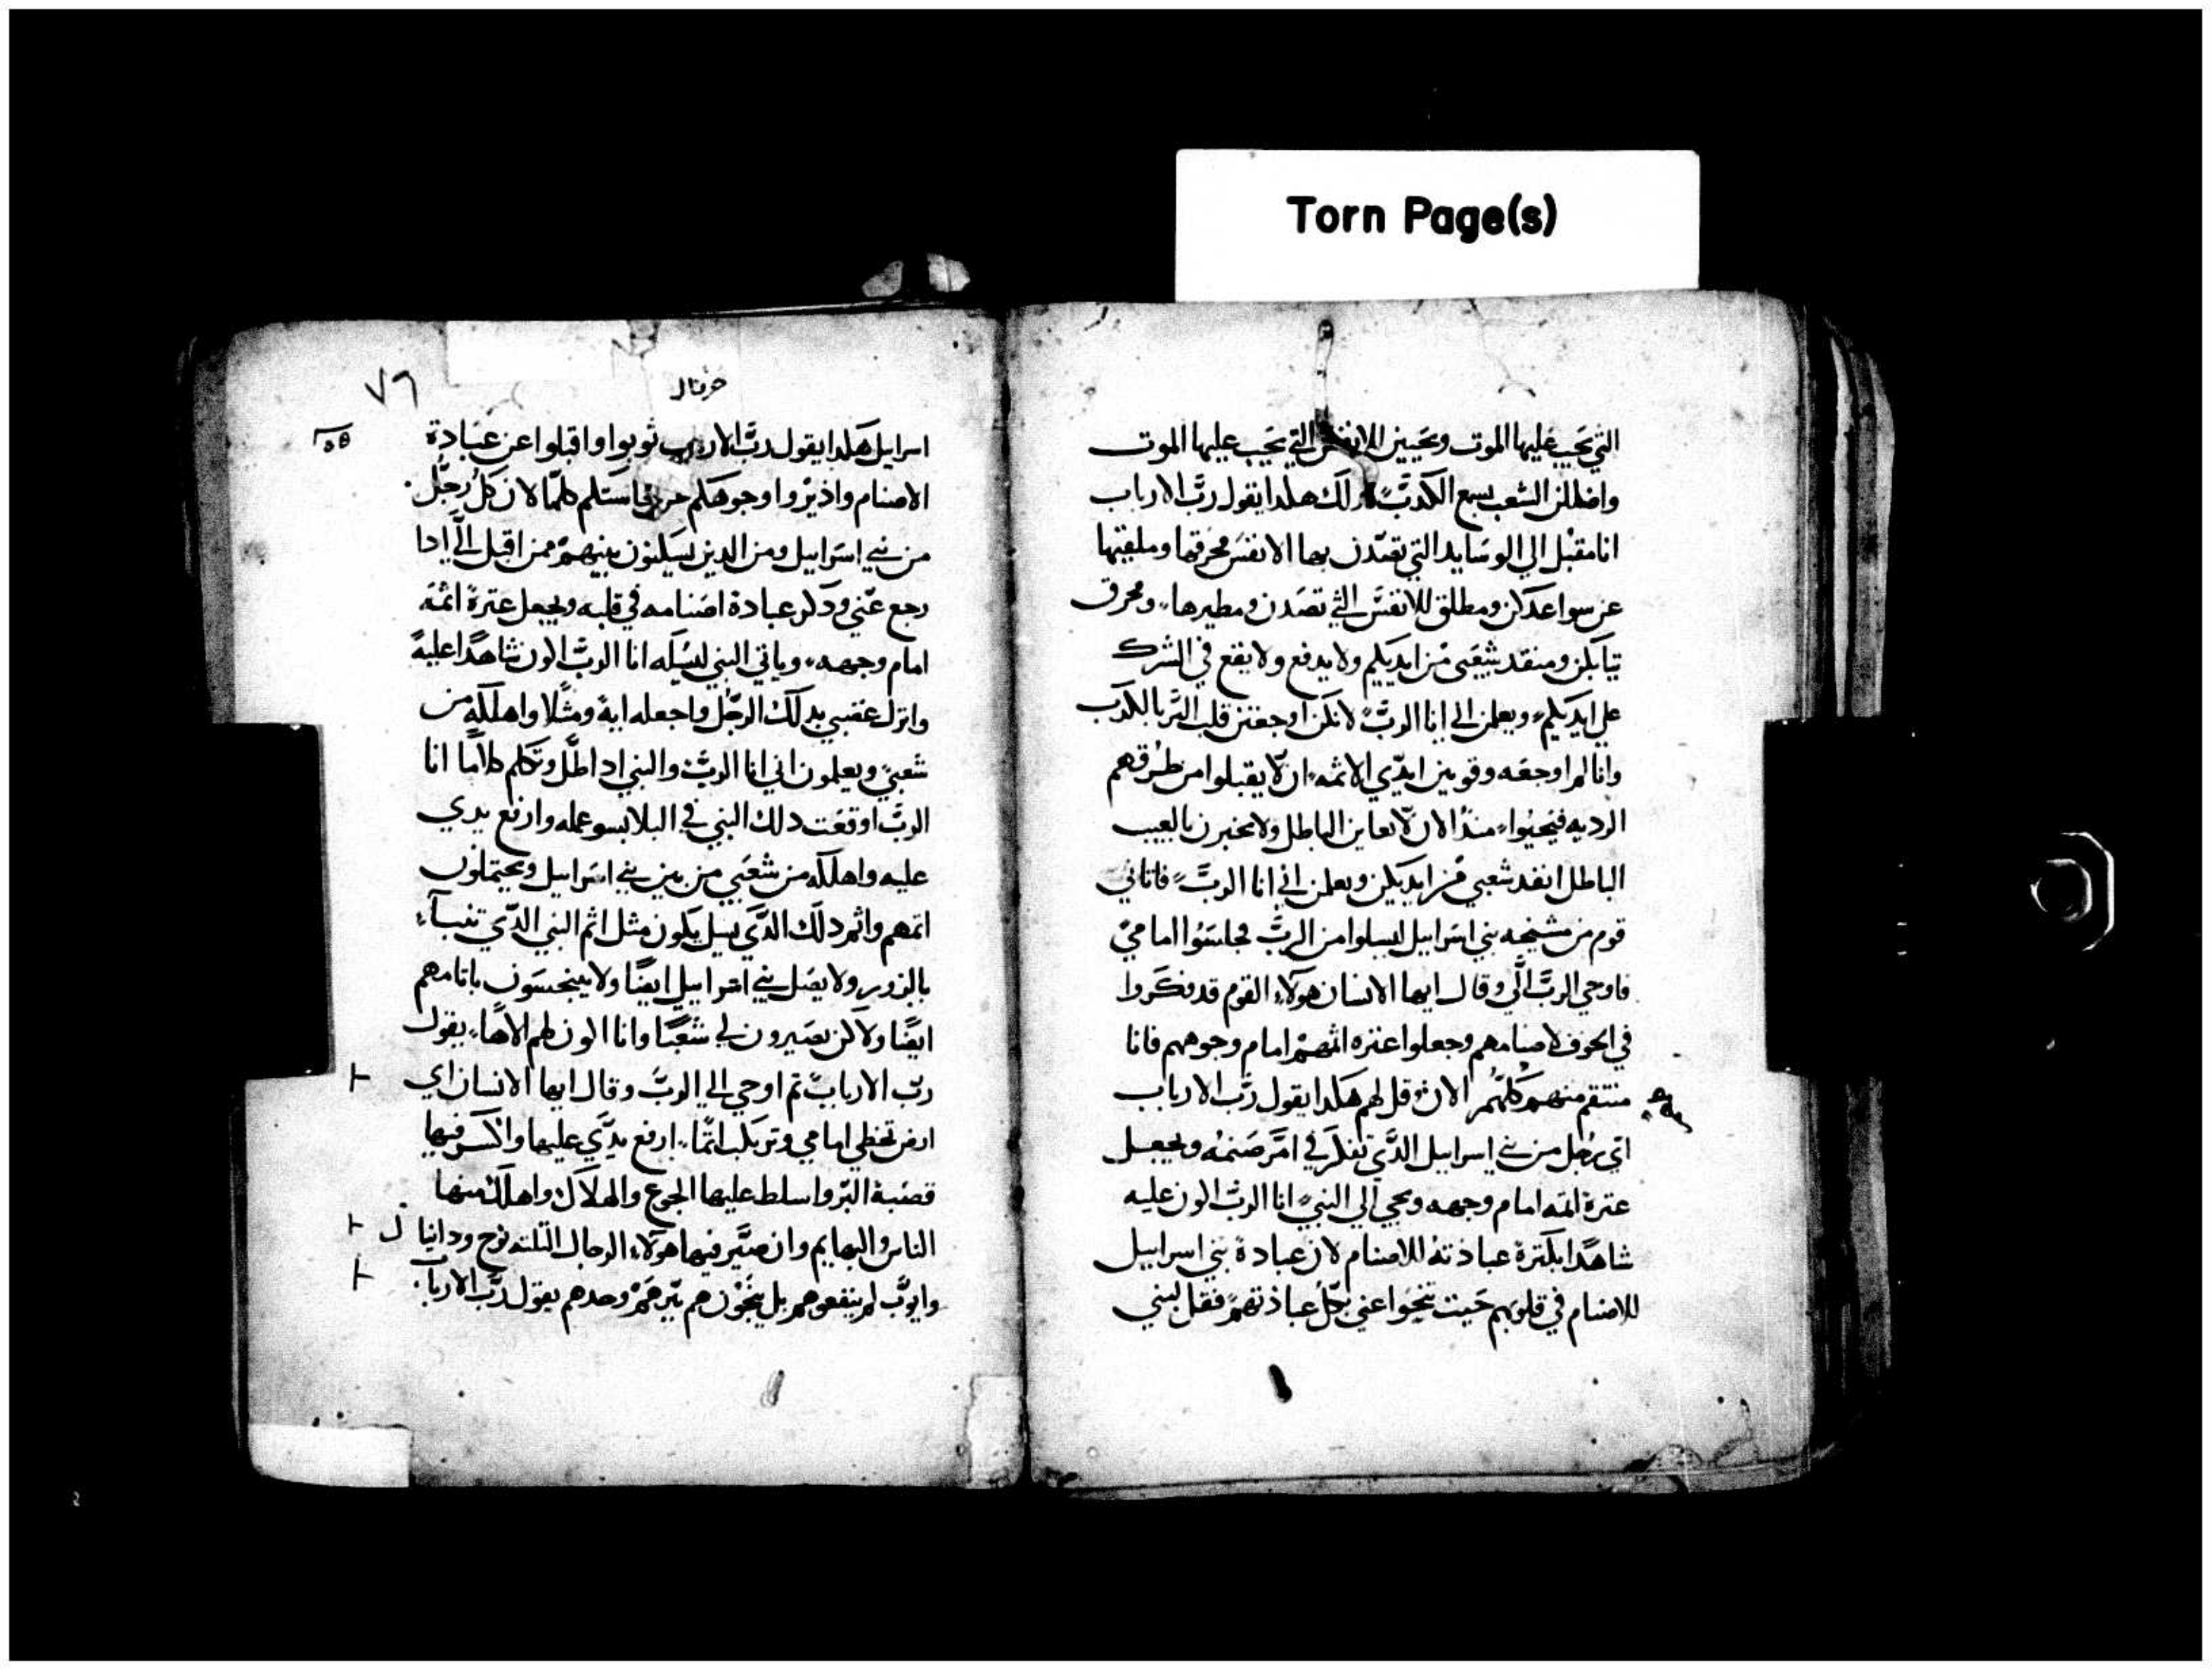 Torn Page(s)
التي يجب عليها الموت وتحيين الانفس التي يجب عليها الموت
واضللن الشعب بسمع الكدب لدلك هكدا يقول رب الارباب
انا مقبل الي الوسايد التي تصدن بها الانفس محرقها وملقيها
عن سواعدكن ومطلق للانفس التي تصدن ومطيرها ومحرق
تيابكن ومنقد شعبي من ايديكم ولا يدفع ولا يقع في الشرك
علي ايديكم ويعلمن اني انا الرب لانكن اوجعتن قلب البر بالكدب
وانا لم اوجعه وقويتن ايدي الاثمه ان لا يقبلوا من طرقهم
الرديه فيحيوا مند الان لا تعاين الباطل ولا تخبرن بالعيب
الباطل انقد شعبي من ايديكن ويعلمن اني انا الرب فاتاني
قوم من مشيخه بني اسرابيل ليسلوا من الرب فجلسوا امامي
فاوحي الرب الي وقال ايها الانسان هولاء القوم قد فكروا
في الخوف لاصنامهم وجعلوا عتره اثمهم امام وجوههم فانا
منتقم منهم كلهم الان قل لهم هكدا يقول رب الارباب
اي رجل من بني اسرابيل الدي تفكر في امر صنمه ويجعل
عترة اتمه امام وجهه ويجي الي النبي انا الرب اكون عليه
شاهدا بكترة عبادته للاصنام لان عبادة بني اسرابيل
للاصنام في قلوبهم حيت تنحوا عني بجل عبادتهم فقل لبني
حزقيال
٧٩
اسرايل هكدا يقول رب الارباب توبوا واقبلوا عن عبادة
الاصنام واديروا وجوهكم عن نجاستكم كلها لان كل رجل
من بني اسرابيل ومن الدين يسكنون بينهم ممن اقبل الي ادا
رجع عني ودكر عبادة اصنامه في قلبه ويجعل عترة اثمه
امام وجهه وياتي النبي ليسله انا الرب اكون شاهدا عليه
وانزل غضبي بدلك الرجل واجعله اية ومثلا واهلكه من
شعبي ويعلمون اني انا الرب والنبي ادا طل وتكلم كلاما انا
الرب اوقعت دلك النبي في البلا بسو عمله وارفع يدي
عليه واهلكه من شعبي من بين بني اسرابيل ويحتملون
اتمهم واثم دلك الدي يسل يكون مثل اثم النبي الدي تنبا
بالزور ولا يضل بني اسرابيل ايضا ولا يتنجسون باتامهم
ايضا ولاكن يصيرون لي شعبا وانا اكون لهم الاها يقول
رب الارباب ثم اوحي الي الرب وقال ايها الانسان اي
ارض تخطي امامي وترتكب اثما ارفع يدي عليها واكسر فيها
قصبة البر واسلط عليها الجوع والهلاك واهلك منها
الناس والبهايم وان صير فيها هولاء الرجال التلته نوح ودانيال
وايوب لم ينفعوهم بل ينجون هم ببرهم وحدهم يقول رب الارباب